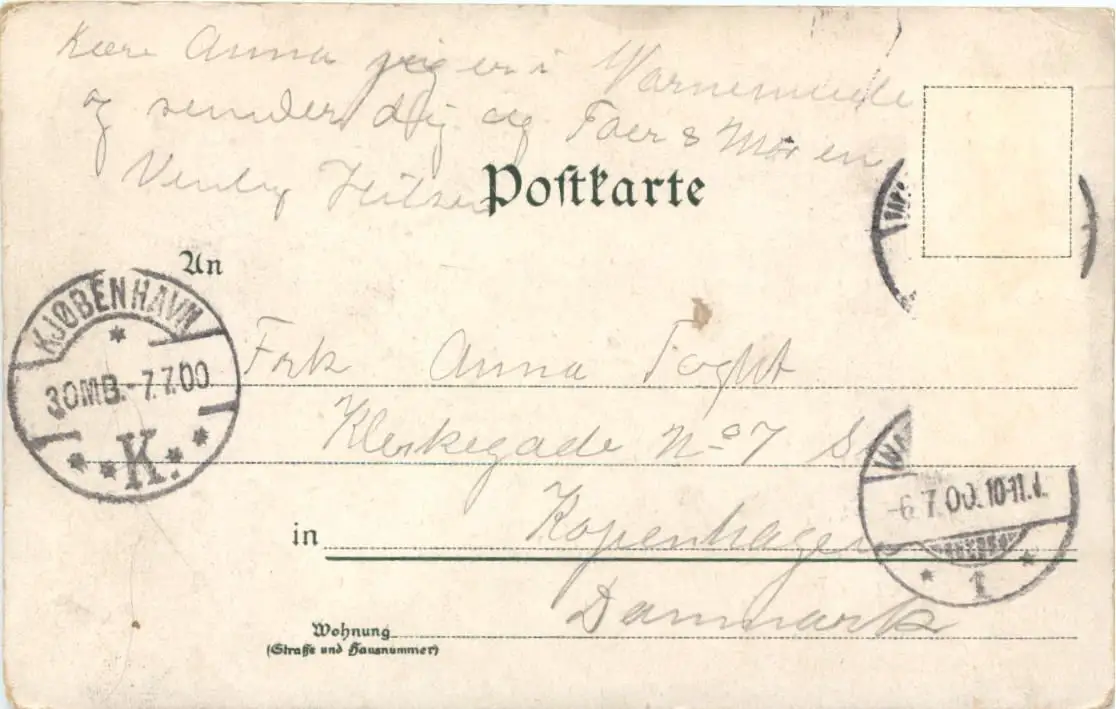 Kære Anna jeg er i Warnemünde
og sender dig og Faer & Mor en
Venlig Hilsen
Postkarte
An
KJØBENHAVN
3.OMB. -7.7.00
K.
Frk Anna Foght
Klerkegade No 7 St
Kopenhagen
in
-6.7.00.10-11.V.
1
Danmark
Wohnung
(Straße und Hausnummer)